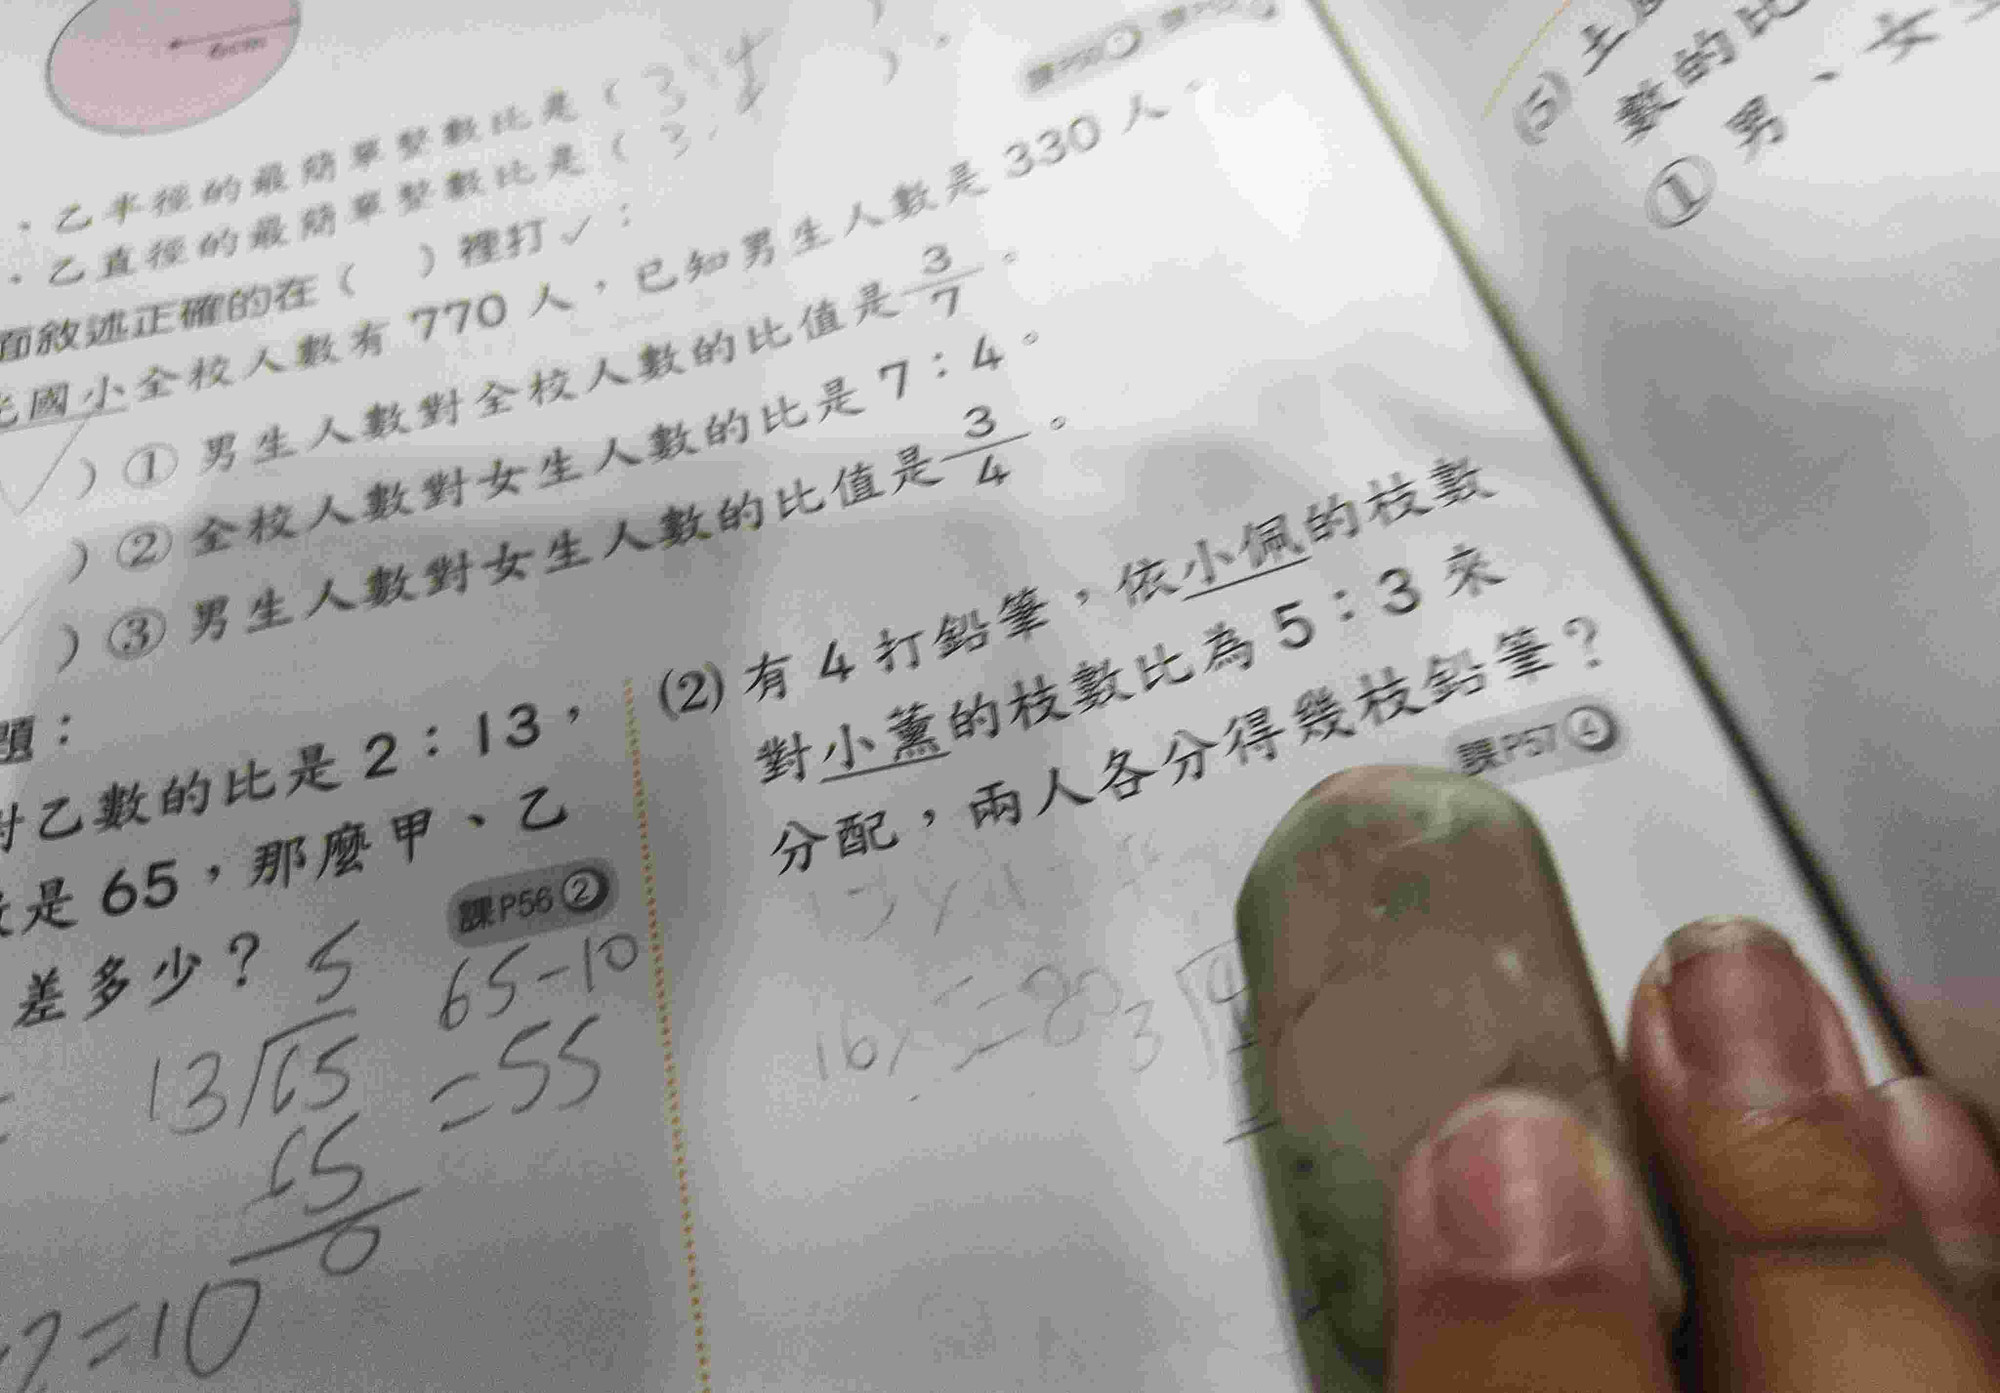 6cm
、乙半徑的最簡單整數比是(3:4)。
、乙直徑的最簡單整數比是(3:4
面敘述正確的在( )裡打✓：
國小全校人數有770人，已知男生人數是330人。
)①男生人數對全校人數的比值是3/7。
)②全校人數對女生人數的比是7：4。
)③男生人數對女生人數的比值是3/4。
題：
對乙數的比是2：13，
是65，那麼甲、乙
差多少？
課P56②
5
13√65
65
0
2=10
65-10
=55
(2)有4打鉛筆，依小佩的枝數
對小薰的枝數比為5：3來
分配，兩人各分得幾枝鉛筆？
課P57④
16×5=80
3
(5)
數的比
①男、女